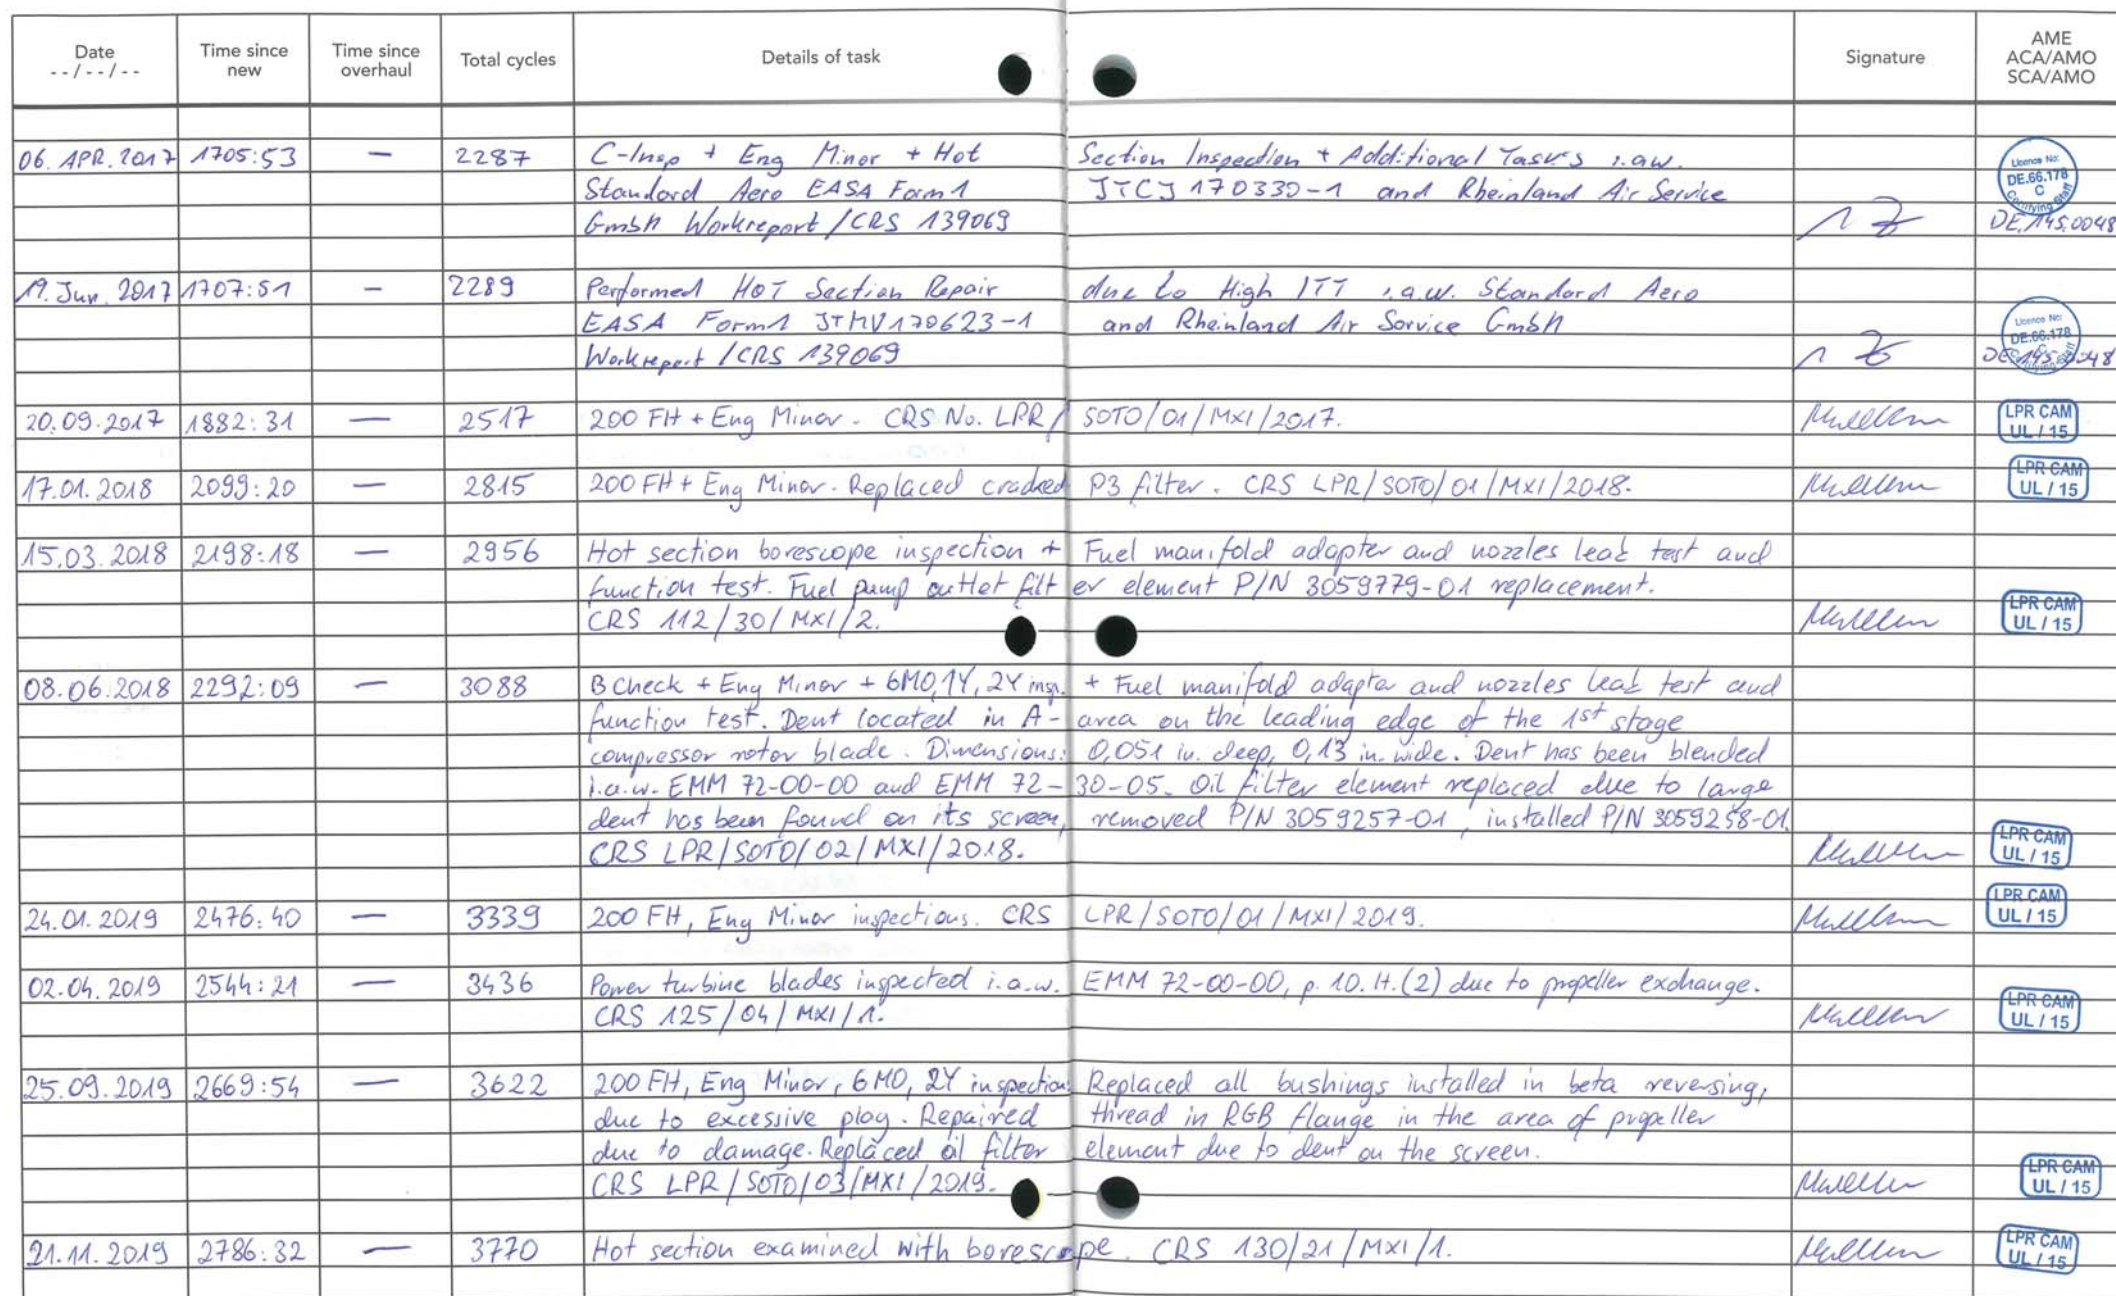 Date --/--/-- Time since new Time since overhaul Total cycles Details of task Signature AME ACA/AMO SCA/AMO
06. APR. 2017 1705:53 — 2287 C-Insp + Eng Minor + Hot Section Inspection + Additional Tasks i.a.w.
Standard Aero EASA Form 1 JTCJ 170330-1 and Rheinland Air Service
GmbH Workreport / CRS 139069
Licence No: DE.66.178 C Certifying Staff
DE.145.0048
19. Jun. 2017 1707:51 — 2289 Performed HOT Section Repair due to High ITT i.a.w. Standard Aero
EASA Form 1 JTMV170623-1 and Rheinland Air Service GmbH
Workreport / CRS 139069
Licence No: DE.66.178 C Certifying Staff
DE.145.0048
20.09.2017 1882:31 — 2517 200 FH + Eng Minor. CRS No. LPR/SOTO/01/MXI/2017. LPR CAM UL / 15
17.01.2018 2099:20 — 2815 200 FH + Eng Minor. Replaced cracked P3 filter. CRS LPR/SOTO/01/MXI/2018. LPR CAM UL / 15
15.03.2018 2198:18 — 2956 Hot section borescope inspection + Fuel manifold adapter and nozzles leak test and
function test. Fuel pump outlet filter element P/N 3059779-01 replacement.
CRS 112/30/MXI/2. LPR CAM UL / 15
08.06.2018 2292:09 — 3088 B Check + Eng Minor + 6MO, 1Y, 2Y insp. + Fuel manifold adapter and nozzles leak test and
function test. Dent located in A-area on the leading edge of the 1st stage
compressor rotor blade. Dimensions: 0,051 in. deep, 0,13 in. wide. Dent has been blended
i.a.w. EMM 72-00-00 and EMM 72-30-05. Oil filter element replaced due to large
dent has been found on its screen, removed P/N 3059257-01, installed P/N 3059258-01.
CRS LPR/SOTO/02/MXI/2018. LPR CAM UL / 15
24.01.2019 2476:40 — 3339 200 FH, Eng Minor inspections. CRS LPR/SOTO/01/MXI/2019. LPR CAM UL / 15
02.04.2019 2544:21 — 3436 Power turbine blades inspected i.a.w. EMM 72-00-00, p. 10. H.(2) due to propeller exchange.
CRS 125/04/MXI/1. LPR CAM UL / 15
25.09.2019 2669:54 — 3622 200 FH, Eng Minor, 6MO, 2Y inspection. Replaced all bushings installed in beta reversing,
due to excessive play. Repaired thread in RGB flange in the area of propeller
due to damage. Replaced oil filter element due to dent on the screen.
CRS LPR/SOTO/03/MXI/2019. LPR CAM UL / 15
21.11.2019 2786:32 — 3770 Hot section examined with borescope. CRS 130/21/MXI/1. LPR CAM UL / 15